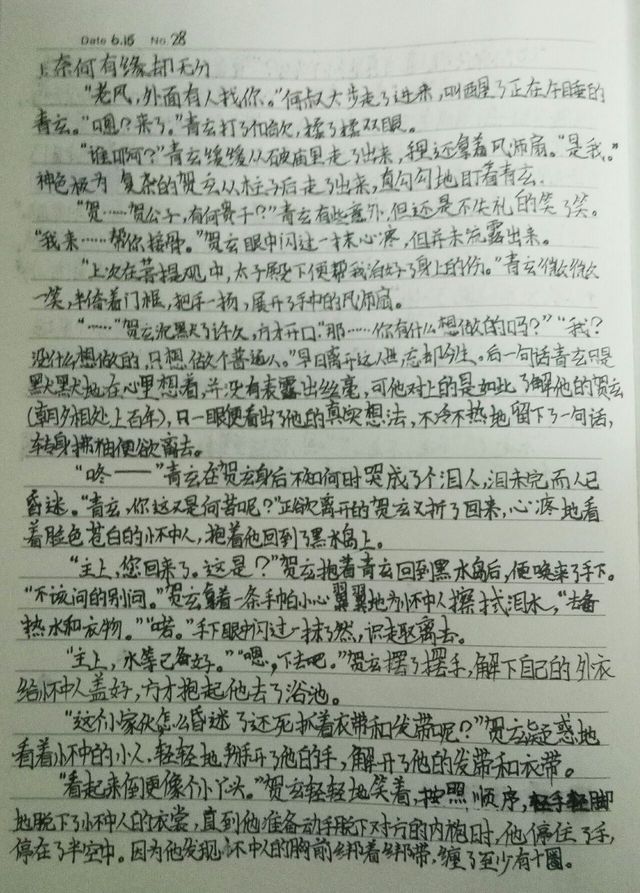 Date 6.15 No. 28
上 奈何有缘却无分
"老风，外面有人找你。"何叔大步走了进来，叫醒了正在午睡的
青玄。"嗯？来了。"青玄打了个哈欠，揉了揉双眼。
"谁啊？"青玄缓缓从破庙里走了出来，手里还拿着风师扇。"是我。"
神色极为复杂的贺玄从柱子后走了出来，直勾勾地盯着青玄。
"贺……贺公子，有何贵干？"青玄有些意外，但还是不失礼的笑了笑。
"我来……帮你接骨。"贺玄眼中闪过一抹心疼，但并未流露出来。
"上次在菩提观中，太子殿下便帮我治好了身上的伤。"青玄微微
一笑，半倚着门框，把手一扬，展开了手中的风师扇。
"……"贺玄沉默了许久，方才开口"那……你有什么想做的吗？""我？
没什么想做的，只想做个普通人。"早日离开这人世，忘却今生。后一句话青玄只是
默默地在心里想着，并没有表露出丝毫，可他对上的是如此了解他的贺玄
(朝夕相处上百年)，只一眼便看出了他的真实想法，不冷不热地留下了一句话，
转身拂袖便欲离去。
"咚——"青玄在贺玄身后不知何时哭成了个泪人，泪未完而人已
昏迷。"青玄，你这又是何苦呢？"正欲离开的贺玄又折了回来，心疼地看
着脸色苍白的怀中人，抱着他回到了黑水岛上。
"主上，您回来了。这是？"贺玄抱着青玄回到黑水岛后，便唤来了手下。
"不该问的别问。"贺玄拿着一条手帕小心翼翼地为怀中人擦拭泪水，"去备
热水和衣物。""喏。"手下眼中闪过一抹了然，识趣离去。
"主上，水等已备好。""嗯，下去吧。"贺玄摆了摆手，解下自己的外衣
给怀中人盖好，方才抱起他去了浴池。
"这个小家伙怎么昏迷了还死抓着衣带和发带呢？"贺玄疑惑地
看着怀中的小人，轻轻地掰开了他的手，解开了他的发带和衣带。
"看起来倒更像个小丫头。"贺玄轻轻地笑着，按照顺序，轻手轻脚
地脱下了怀中人的衣裳，直到他准备动手脱下对方的内袍时，他停住了手，
停在了半空中。因为他发现怀中人的胸前绑着绑带，缠了至少有十圈。